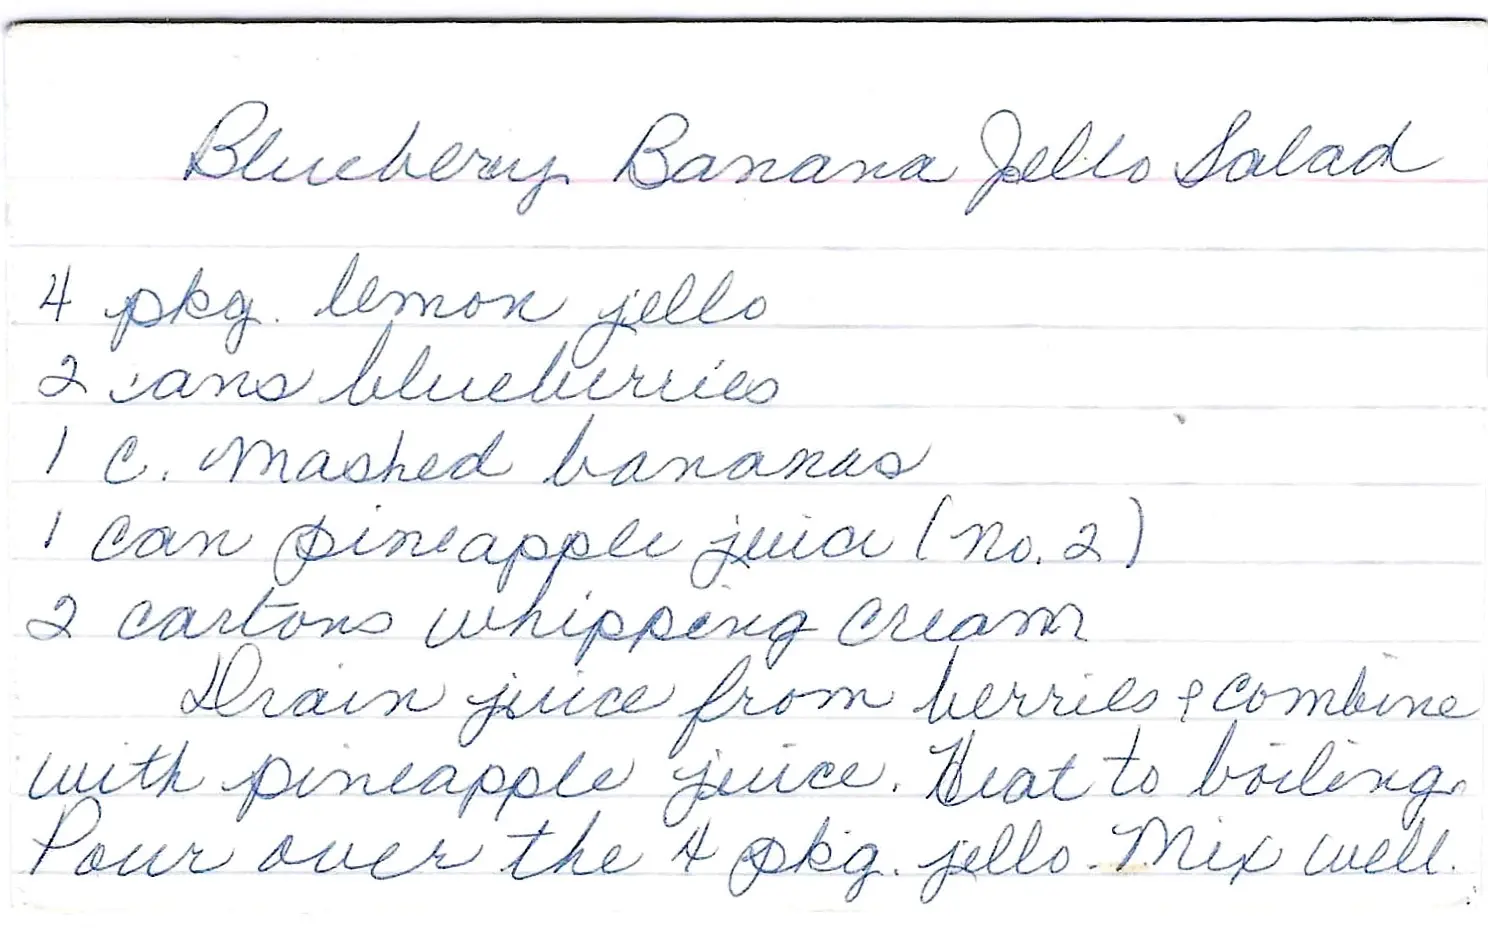 Blueberry Banana Jello Salad
4 pkg. lemon jello
2 cans blueberries
1 c. mashed bananas
1 can pineapple juice (no. 2)
2 cartons whipping cream
Drain juice from berries & combine
with pineapple juice. Heat to boiling.
Pour over the 4 pkg. jello. Mix well.